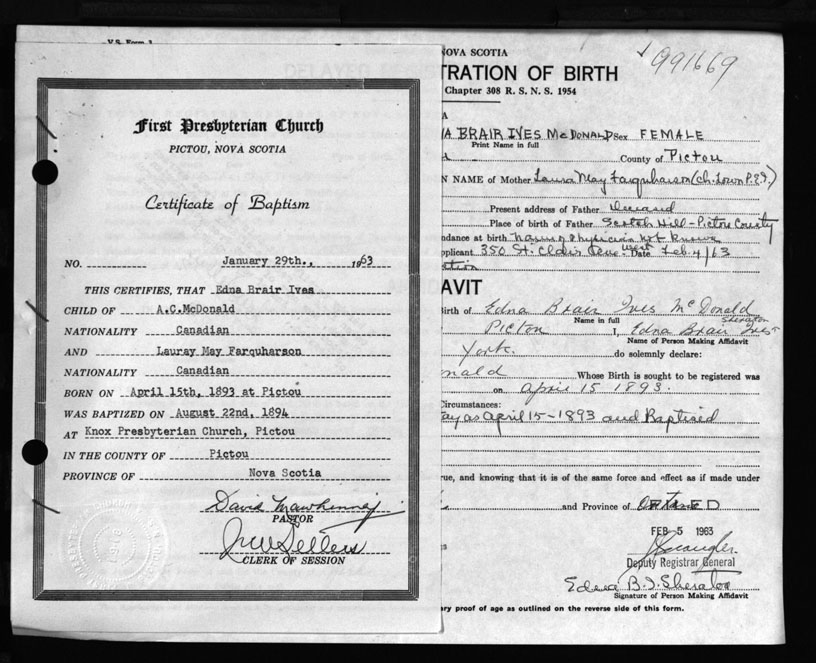 First Presbyterian Church
PICTOU, NOVA SCOTIA
Certificate of Baptism
NO. January 29th., 1963
THIS CERTIFIES, THAT Edna Brair Ives
CHILD OF A.C.McDonald
NATIONALITY Canadian
AND Lauray May Farquharson
NATIONALITY Canadian
BORN ON April 15th, 1893 at Pictou
WAS BAPTIZED ON August 22nd, 1894
AT Knox Presbyterian Church, Pictou
IN THE COUNTY OF Pictou
PROVINCE OF Nova Scotia
David Mawhinney
PASTOR
CLERK OF SESSION
NOVA SCOTIA
991669
TRATION OF BIRTH
Chapter 308 R. S. N. S. 1954
A BRAIR IVES McDONALD Sex FEMALE
Print Name in full
County of Pictou
N NAME of Mother Laura May Farquharson (Ch. Town P.E.I.)
Present address of Father Deceased
Place of birth of Father Scotch Hill - Pictou County
ndance at birth not known
plicant 350 St. Clair Ave. West Date Feb 4/63
AVIT
irth of Edna Brair Ives McDonald
Name in full
Pictou I, Edna Brair Ives Sheraton
Name of Person Making Affidavit
York. do solemnly declare:
nald Whose Birth is sought to be registered was
on April 15 1893.
Circumstances:
ay as April 15-1893 and Baptised
rue, and knowing that it is of the same force and effect as if made under
and Province of Ontario
FILED
FEB 5 1963
Deputy Registrar General
Edna B. I. Sheraton
Signature of Person Making Affidavit
ry proof of age as outlined on the reverse side of this form.